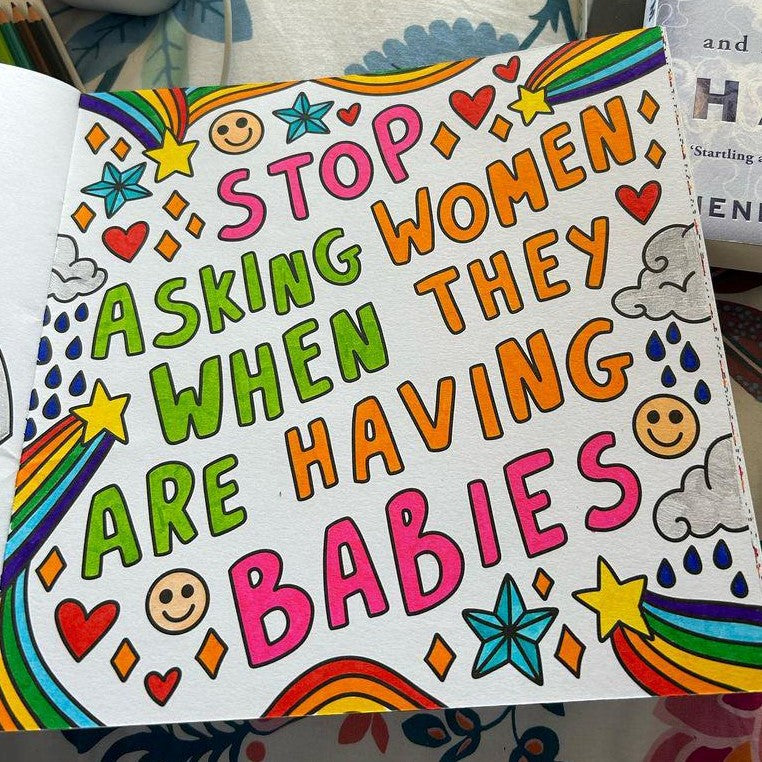 STOP
ASKING WOMEN
WHEN THEY
ARE HAVING
BABIES
and
'Startling a